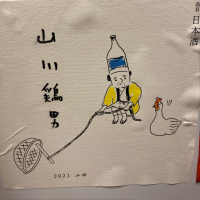 日本酒
山川鶏男
2021